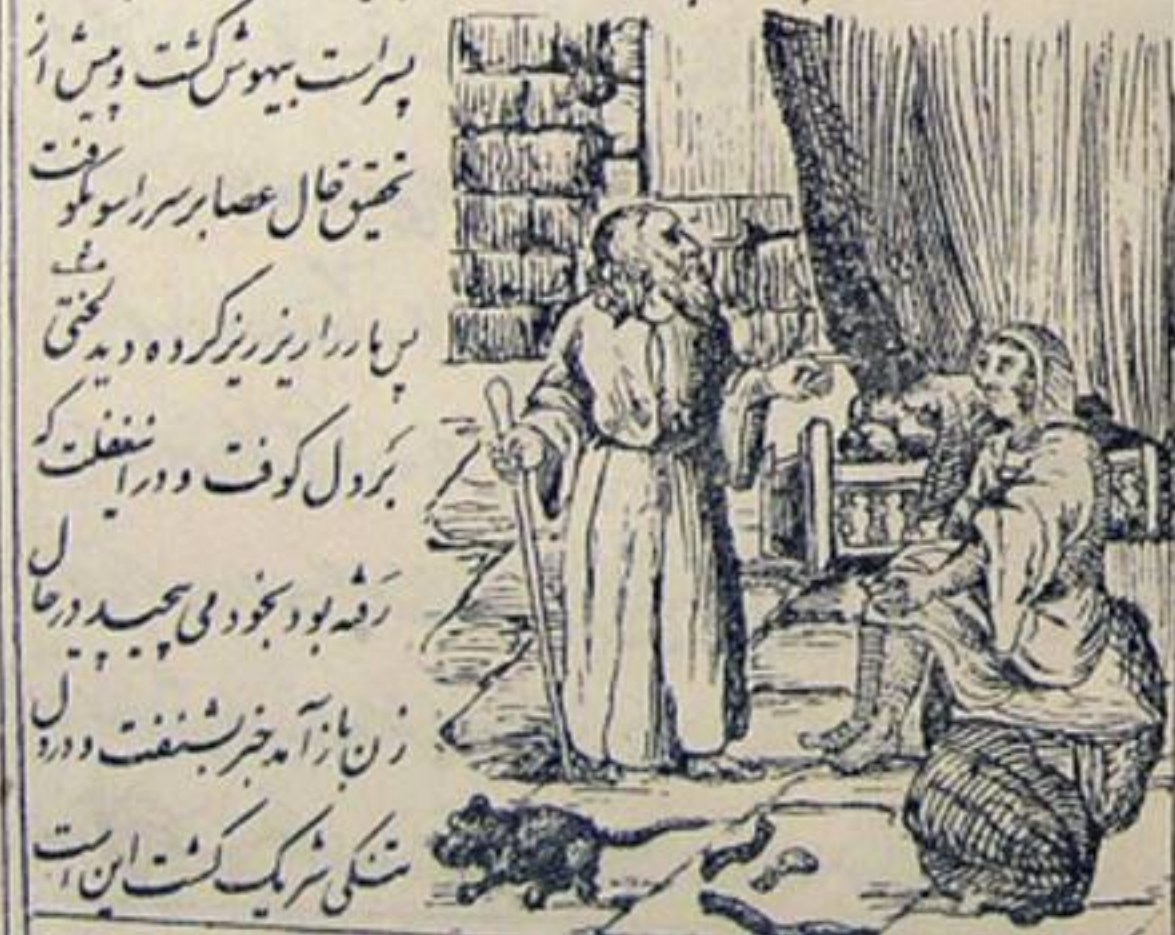 پسر است بیهوش گشت و پیش از
تحقیق حال عصا بر سر راسو کوفت
پس مار را ریز ریز کرده دید لختی
بر دل کوفت و در این غفلت که
رفته بود بخود می پیچید در حال
زن باز آمد خبر بشنفت و در دل
تنگی شریک گشت این است